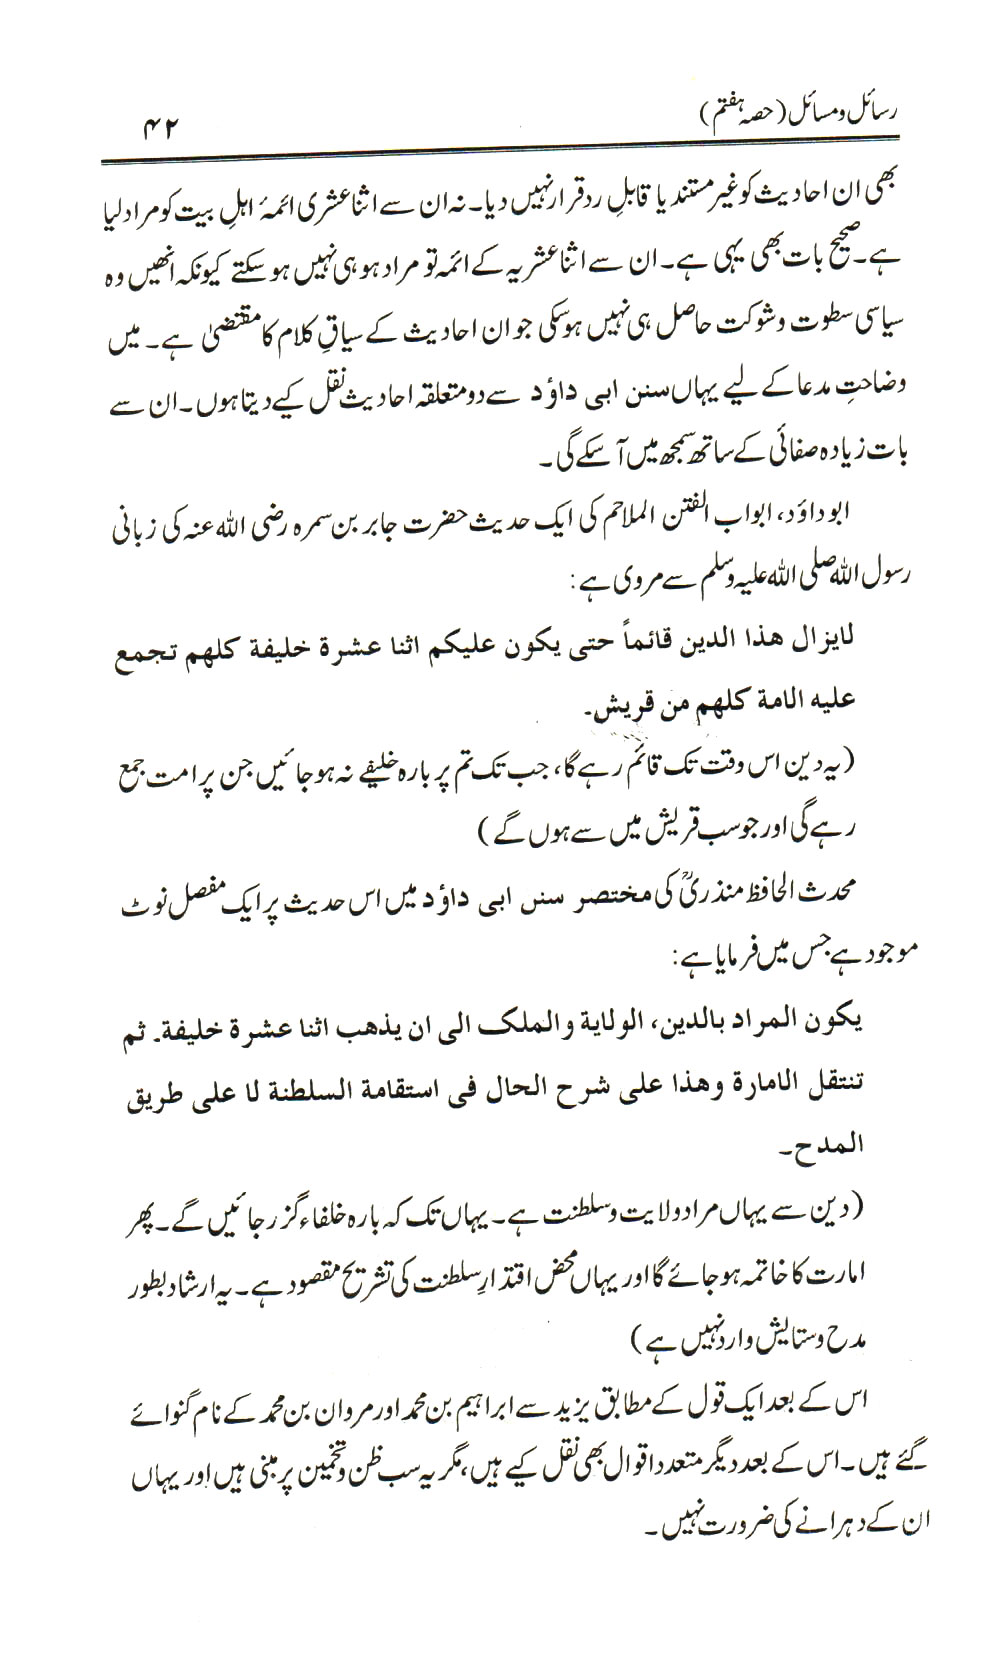 رسائل و مسائل (حصہ ہفتم)
۴۲
بھی ان احادیث کو غیر مستند یا قابلِ رد قرار نہیں دیا۔ نہ ان سے اثنا عشری ائمۂ اہلِ بیت کو مراد لیا
ہے۔ صحیح بات بھی یہی ہے۔ ان سے اثنا عشریہ کے ائمہ تو مراد ہو ہی نہیں ہو سکتے کیونکہ انھیں وہ
سیاسی سطوت و شوکت حاصل ہی نہیں ہو سکی جو ان احادیث کے سیاقِ کلام کا مقتضیٰ ہے۔ میں
وضاحتِ مدعا کے لیے یہاں سنن ابی داؤد سے دو متعلقہ احادیث نقل کیے دیتا ہوں۔ ان سے
بات زیادہ صفائی کے ساتھ سمجھ میں آ سکے گی۔
ابوداؤد، ابواب الفتن الملاحم کی ایک حدیث حضرت جابر بن سمرہ رضی اللہ عنہ کی زبانی
رسول اللہ صلی اللہ علیہ وسلم سے مروی ہے:
لایزال ھذا الدین قائماً حتی یکون علیکم اثنا عشرۃ خلیفۃ کلھم تجمع
علیہ الامۃ کلھم من قریش۔
(یہ دین اس وقت تک قائم رہے گا، جب تک تم پر بارہ خلیفے نہ ہو جائیں جن پر امت جمع
رہے گی اور جو سب قریش میں سے ہوں گے)
محدث الحافظ منذریؒ کی مختصر سنن ابی داؤد میں اس حدیث پر ایک مفصل نوٹ
موجود ہے جس میں فرمایا ہے:
یکون المراد بالدین، الولایۃ والملک الی ان یذھب اثنا عشرۃ خلیفۃ۔ ثم
تنتقل الامارۃ وھذا علی شرح الحال فی استقامۃ السلطنۃ لا علی طریق
المدح۔
(دین سے یہاں مراد ولایت و سلطنت ہے۔ یہاں تک کہ بارہ خلفاء گزر جائیں گے۔ پھر
امارت کا خاتمہ ہو جائے گا اور یہاں محض اقتدارِ سلطنت کی تشریح مقصود ہے۔ یہ ارشاد بطور
مدح و ستایش وارد نہیں ہے)
اس کے بعد ایک قول کے مطابق یزید سے ابراہیم بن محمد اور مروان بن محمد کے نام گنوائے
گئے ہیں۔ اس کے بعد دیگر متعدد اقوال بھی نقل کیے ہیں، مگر یہ سب ظن و تخمین پر مبنی ہیں اور یہاں
ان کے دہرانے کی ضرورت نہیں۔